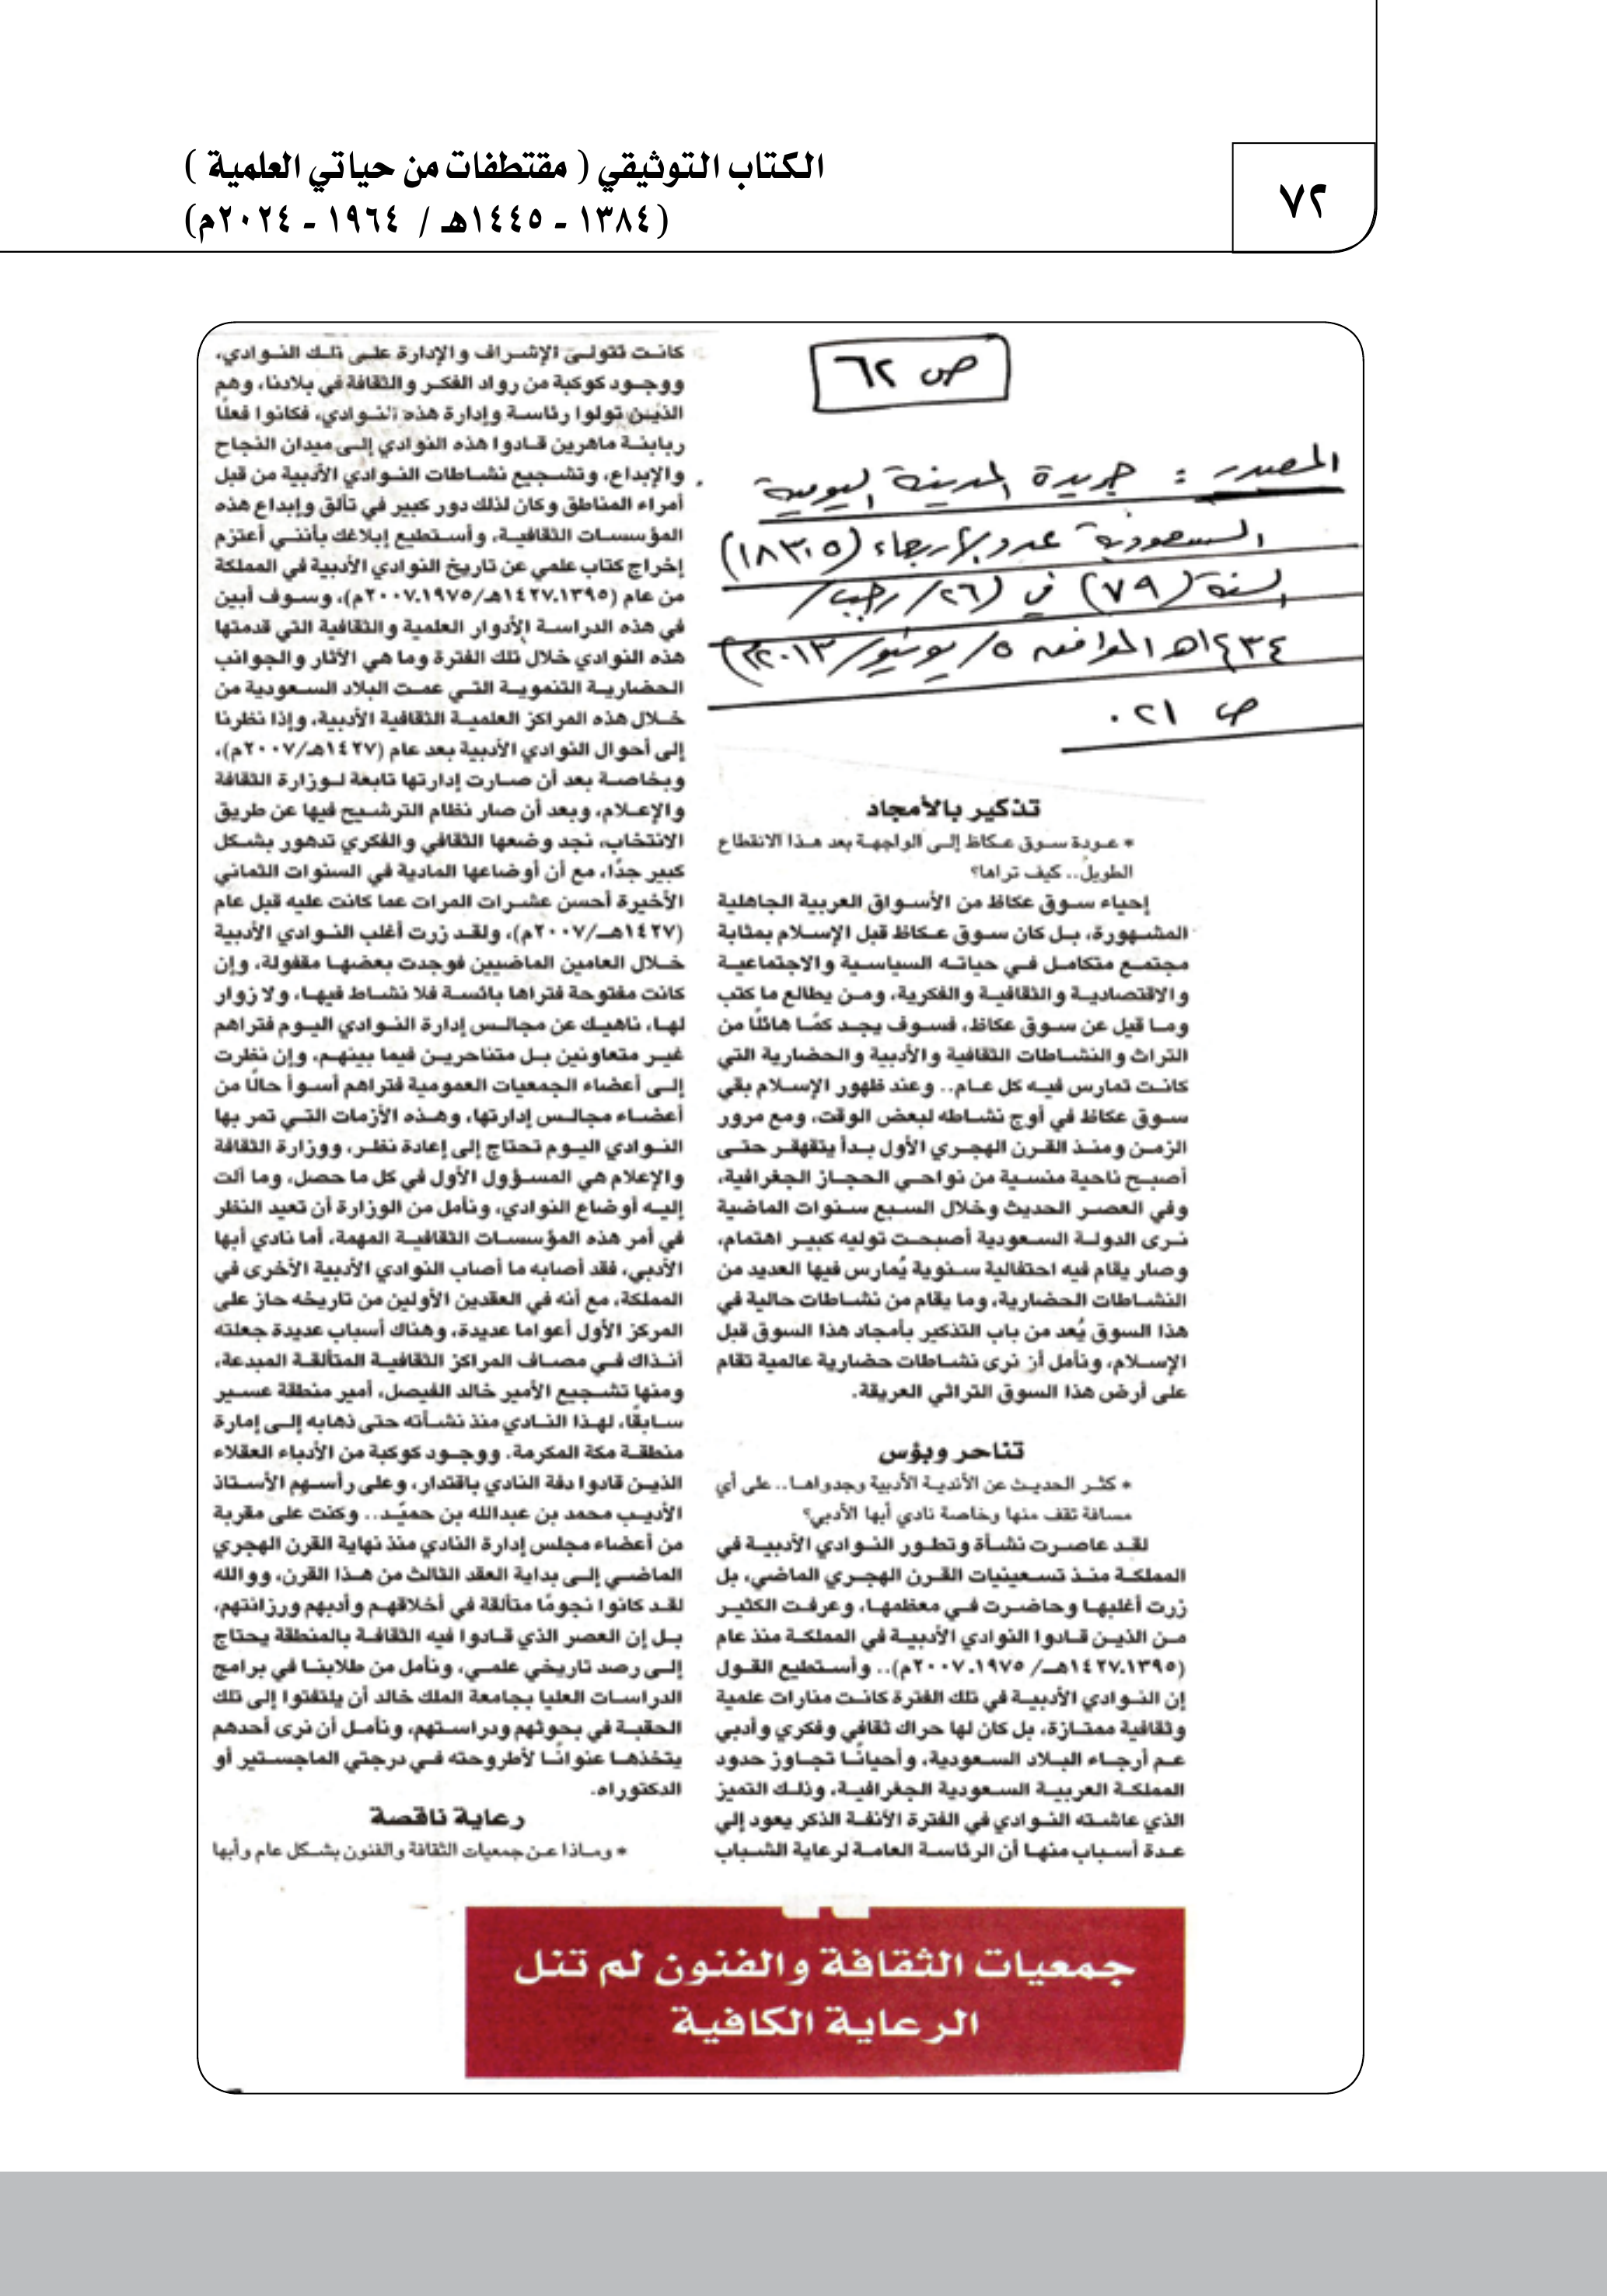 ٧٢
الكتاب التوثيقي ( مقتطفات من حياتي العلمية )
(١٣٨٤ - ١٤٤٥هـ / ١٩٦٤ - ٢٠٢٤م)
ص ٦٢
المصدر : جريدة المدينة اليومية
السعودية عدد الأربعاء (١٨٣٠٥)
السنة (٧٩) في (٢٦/ رجب/
١٤٣٤هـ الموافق ٥/ يونيو/ ٢٠١٣م)
ص ٢١.
تذكير بالأمجاد
* عودة سوق عكاظ إلى الواجهة بعد هذا الانقطاع
الطويل.. كيف تراها؟
إحياء سوق عكاظ من الأسواق العربية الجاهلية
المشهورة، بل كان سوق عكاظ قبل الإسلام بمثابة
مجتمع متكامل في حياته السياسية والاجتماعية
والاقتصادية والثقافية والفكرية، ومن يطالع ما كتب
وما قيل عن سوق عكاظ، فسوف يجد كمًا هائلًا من
التراث والنشاطات الثقافية والأدبية والحضارية التي
كانت تمارس فيه كل عام.. وعند ظهور الإسلام بقي
سوق عكاظ في أوج نشاطه لبعض الوقت، ومع مرور
الزمن ومنذ القرن الهجري الأول بدأ يتقهقر حتى
أصبح ناحية منسية من نواحي الحجاز الجغرافية،
وفي العصر الحديث وخلال السبع سنوات الماضية
نرى الدولة السعودية أصبحت توليه كبير اهتمام،
وصار يقام فيه احتفالية سنوية يُمارس فيها العديد من
النشاطات الحضارية، وما يقام من نشاطات حالية في
هذا السوق يُعد من باب التذكير بأمجاد هذا السوق قبل
الإسلام، ونأمل أن نرى نشاطات حضارية عالمية تقام
على أرض هذا السوق التراثي العريقة.
تناحر وبؤس
* كثر الحديث عن الأندية الأدبية وجدواها.. على أي
مسافة تقف منها وخاصة نادي أبها الأدبي؟
لقد عاصرت نشأة وتطور النوادي الأدبية في
المملكة منذ تسعينيات القرن الهجري الماضي، بل
زرت أغلبها وحاضرت في معظمها، وعرفت الكثير
من الذين قادوا النوادي الأدبية في المملكة منذ عام
(١٤٢٧.١٣٩٥هـ/ ٢٠٠٧.١٩٧٥م).. وأستطيع القول
إن النوادي الأدبية في تلك الفترة كانت منارات علمية
وثقافية ممتازة، بل كان لها حراك ثقافي وفكري وأدبي
عم أرجاء البلاد السعودية، وأحيانًا تجاوز حدود
المملكة العربية السعودية الجغرافية، وذلك التميز
الذي عاشته النوادي في الفترة الأنفة الذكر يعود إلي
عدة أسباب منها أن الرئاسة العامة لرعاية الشباب
كانت تتولى الإشراف والإدارة على تلك النوادي،
ووجود كوكبة من رواد الفكر والثقافة في بلادنا، وهم
الذين تولوا رئاسة وإدارة هذه النوادي، فكانوا فعلًا
ربابنة ماهرين قادوا هذه النوادي إلى ميدان النجاح
والإبداع، وتشجيع نشاطات النوادي الأدبية من قبل
أمراء المناطق وكان لذلك دور كبير في تألق وإبداع هذه
المؤسسات الثقافية، وأستطيع إبلاغك بأنني أعتزم
إخراج كتاب علمي عن تاريخ النوادي الأدبية في المملكة
من عام (١٤٢٧.١٣٩٥هـ/٢٠٠٧.١٩٧٥م)، وسوف أبين
في هذه الدراسة الأدوار العلمية والثقافية التي قدمتها
هذه النوادي خلال تلك الفترة وما هي الآثار والجوانب
الحضارية التنموية التي عمت البلاد السعودية من
خلال هذه المراكز العلمية الثقافية الأدبية، وإذا نظرنا
إلى أحوال النوادي الأدبية بعد عام (١٤٢٧هـ/٢٠٠٧م)،
وبخاصة بعد أن صارت إدارتها تابعة لوزارة الثقافة
والإعلام، وبعد أن صار نظام الترشيح فيها عن طريق
الانتخاب، نجد وضعها الثقافي والفكري تدهور بشكل
كبير جدًا، مع أن أوضاعها المادية في السنوات الثماني
الأخيرة أحسن عشرات المرات عما كانت عليه قبل عام
(١٤٢٧هـ/٢٠٠٧م)، ولقد زرت أغلب النوادي الأدبية
خلال العامين الماضيين فوجدت بعضها مقفولة، وإن
كانت مفتوحة فتراها بائسة فلا نشاط فيها، ولا زوار
لها، ناهيك عن مجالس إدارة النوادي اليوم فتراهم
غير متعاونين بل متناحرين فيما بينهم، وإن نظرت
إلى أعضاء الجمعيات العمومية فتراهم أسوأ حالًا من
أعضاء مجالس إدارتها، وهذه الأزمات التي تمر بها
النوادي اليوم تحتاج إلى إعادة نظر، ووزارة الثقافة
والإعلام هي المسؤول الأول في كل ما حصل، وما ألت
إليه أوضاع النوادي، ونأمل من الوزارة أن تعيد النظر
في أمر هذه المؤسسات الثقافية المهمة، أما نادي أبها
الأدبي، فقد أصابه ما أصاب النوادي الأدبية الأخرى في
المملكة، مع أنه في العقدين الأولين من تاريخه حاز على
المركز الأول أعواما عديدة، وهناك أسباب عديدة جعلته
أنذاك في مصاف المراكز الثقافية المتألقة المبدعة،
ومنها تشجيع الأمير خالد الفيصل، أمير منطقة عسير
سابقًا، لهذا النادي منذ نشأته حتى ذهابه إلى إمارة
منطقة مكة المكرمة. ووجود كوكبة من الأدباء العقلاء
الذين قادوا دفة النادي باقتدار، وعلى رأسهم الأستاذ
الأديب محمد بن عبدالله بن حميّد.. وكنت على مقربة
من أعضاء مجلس إدارة النادي منذ نهاية القرن الهجري
الماضي إلى بداية العقد الثالث من هذا القرن، ووالله
لقد كانوا نجومًا متألقة في أخلاقهم وأدبهم ورزانتهم،
بل إن العصر الذي قادوا فيه الثقافة بالمنطقة يحتاج
إلى رصد تاريخي علمي، ونأمل من طلابنا في برامج
الدراسات العليا بجامعة الملك خالد أن يلتفتوا إلى تلك
الحقبة في بحوثهم ودراستهم، ونأمل أن نرى أحدهم
يتخذها عنوانًا لأطروحته في درجتي الماجستير أو
الدكتوراه.
رعاية ناقصة
* وماذا عن جمعيات الثقافة والفنون بشكل عام وأبها
جمعيات الثقافة والفنون لم تنل
الرعاية الكافية